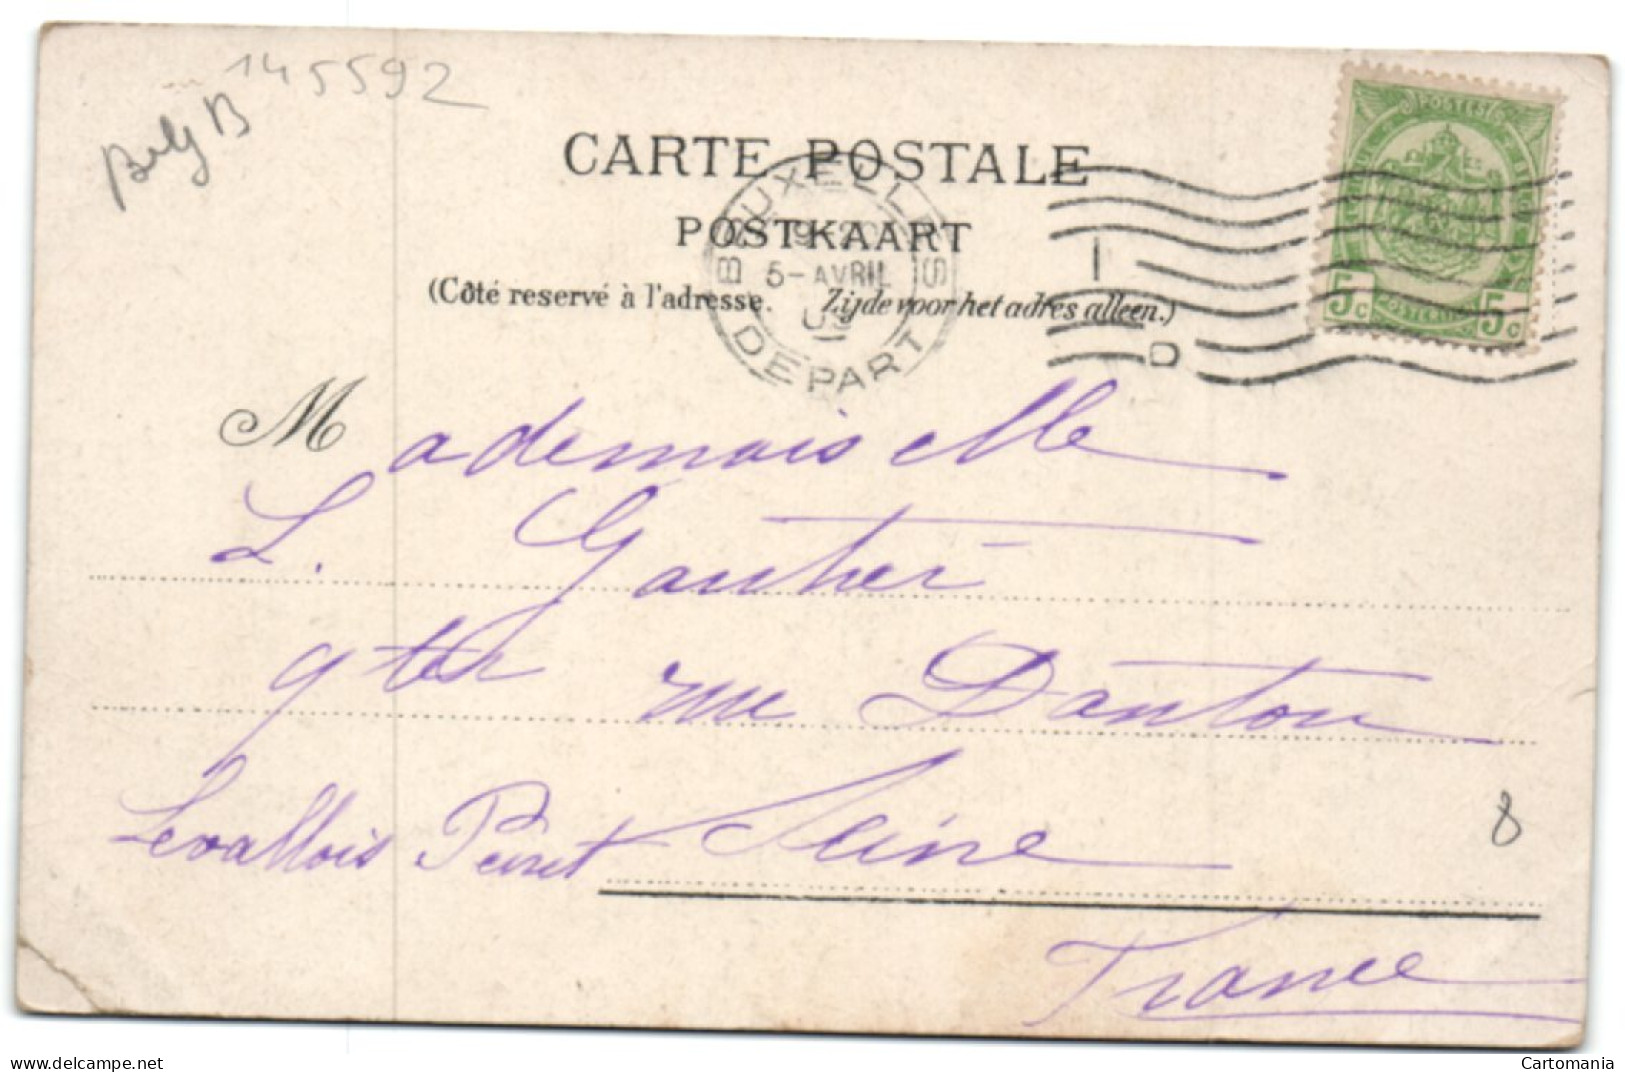 145592
Belg B
CARTE POSTALE
POSTKAART
(Côté reservé à l'adresse. Zijde voor het adres alleen.)
BRUXELLES
5-AVRIL
DEPART
POSTES
5c 5c
POSTERIJEN
Mademoiselle
L. Gauthier
9 ter rue Danton
Levallois Perret Seine
8
France
delcampe.net
Cartomania